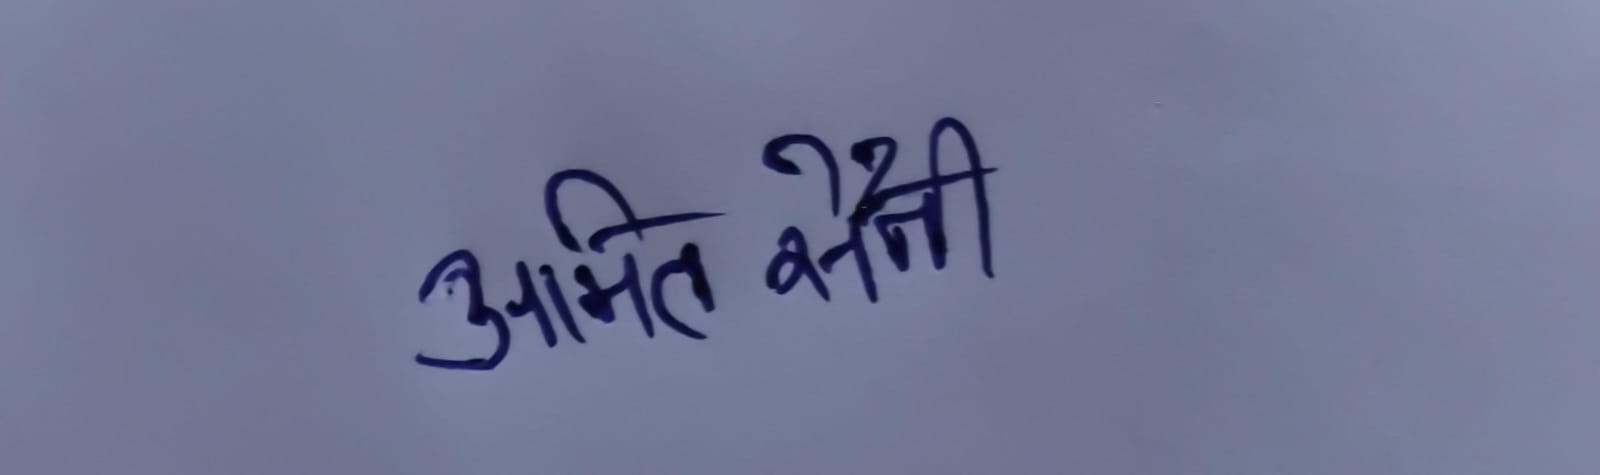 अमित सैनी